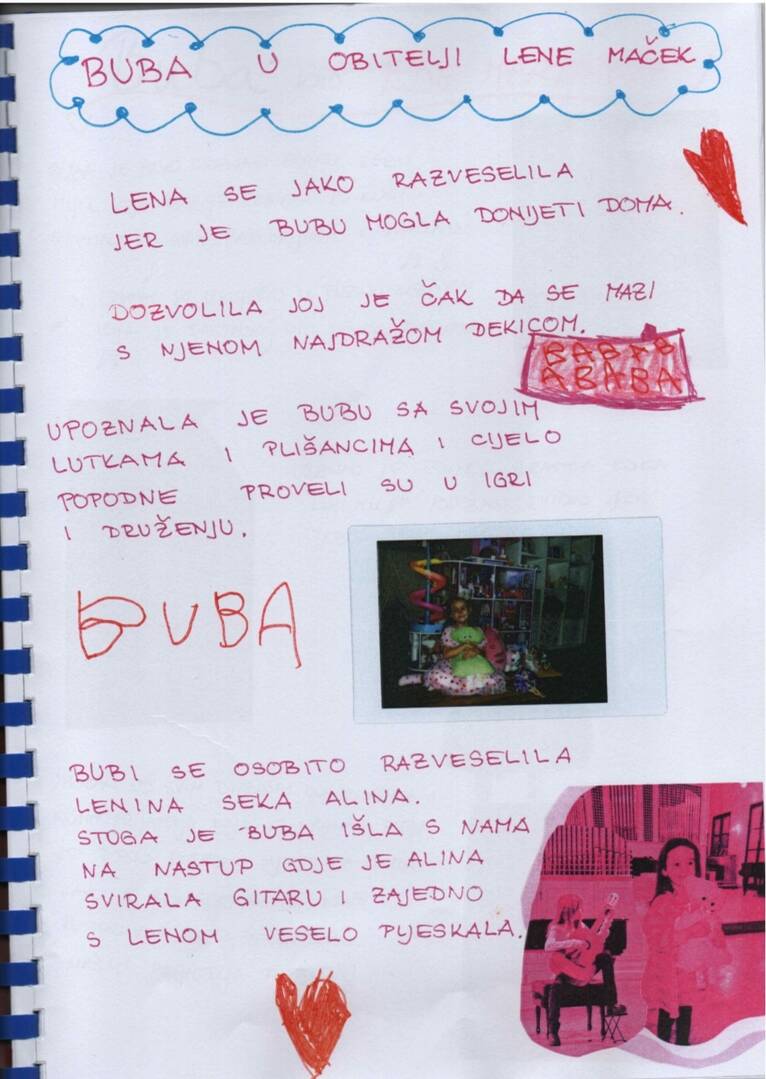 BUBA U OBITELJI LENE MAČEK
LENA SE JAKO RAZVESELILA
JER JE BUBU MOGLA DONIJETI DOMA.
DOZVOLILA JOJ JE ČAK DA SE MAZI
S NJENOM NAJDRAŽOM DEKICOM.
BABAB
ABABA
UPOZNALA JE BUBU SA SVOJIM
LUTKAMA I PLIŠANCIMA I CIJELO
POPODNE PROVELI SU U IGRI
I DRUŽENJU.
BUBA
BUBI SE OSOBITO RAZVESELILA
LENINA SEKA ALINA.
STOGA JE BUBA IŠLA S NAMA
NA NASTUP GDJE JE ALINA
SVIRALA GITARU I ZAJEDNO
S LENOM VESELO PLJESKALA.